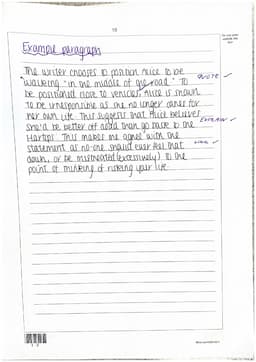 10
Do not write
outside the
box
Example paragraph
The writer chooses to position Alice to be
"walking "in the middle of the road." To QUOTE ✓
be positioned close to vehicles, Alice is shown
to be irresponsible as she no longer cares for
her own life. This suggests that Alice believes EXPLAIN ✓
she'd be better off dead than go back to the
Hartops. This makes me agree with the LINK ✓
statement as no-one should ever feel that
down, or be mistreated (excessively) to the
point of thinking of risking your life.